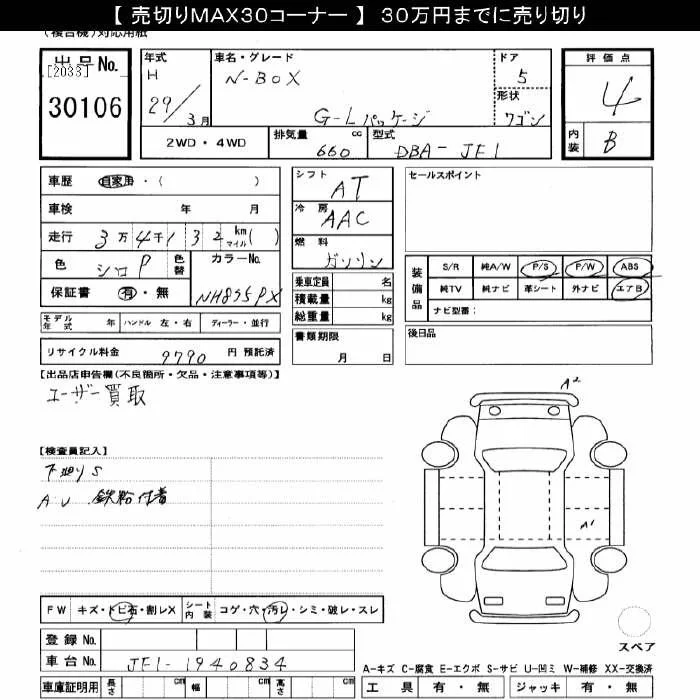 【 売切りMAX30コーナー 】 30万円までに売り切り
(複合機)対応用紙
出品No. [2033] 30106
年式 H 29/3月
車名・グレード N-BOX G-Lパッケージ
ドア 5
形状 ワゴン
評価点 4
内装 B
2WD・4WD 排気量 660 cc 型式 DBA-JF1
車歴 自家用・( )
車検 年 月
走行 3万4千132 km マイル( )
色 シロP 色替 カラーNo. NH875PX
保証書 有・無
シフト AT
冷房 AAC
燃料 ガソリン
乗車定員 名
積載量 kg
総重量 kg
書類期限 月 日
セールスポイント
装備品 S/R 純A/W P/S P/W ABS
純TV 純ナビ 革シート 外ナビ エアB
ナビ型番:
後日品
モデル年式 年 ハンドル 左・右 ディーラー・並行
リサイクル料金 9790 円 預託済
【出品店申告欄(不良箇所・欠品・注意事項等)】
ユーザー買取
【検査員記入】
下廻りS
AU 鉄粉付着
A2
A1
FW キズ・トビ石・割レX シート内装 コゲ・穴・汚レ・シミ・破レ・スレ
登録No.
車台No. JF1-1940834
車庫証明用 長さ cm 幅 cm 高さ cm
スペア
A-キズ C-腐食 E-エクボ S-サビ U-凹ミ W-補修 XX-交換済
工具 有・無 ジャッキ 有・無